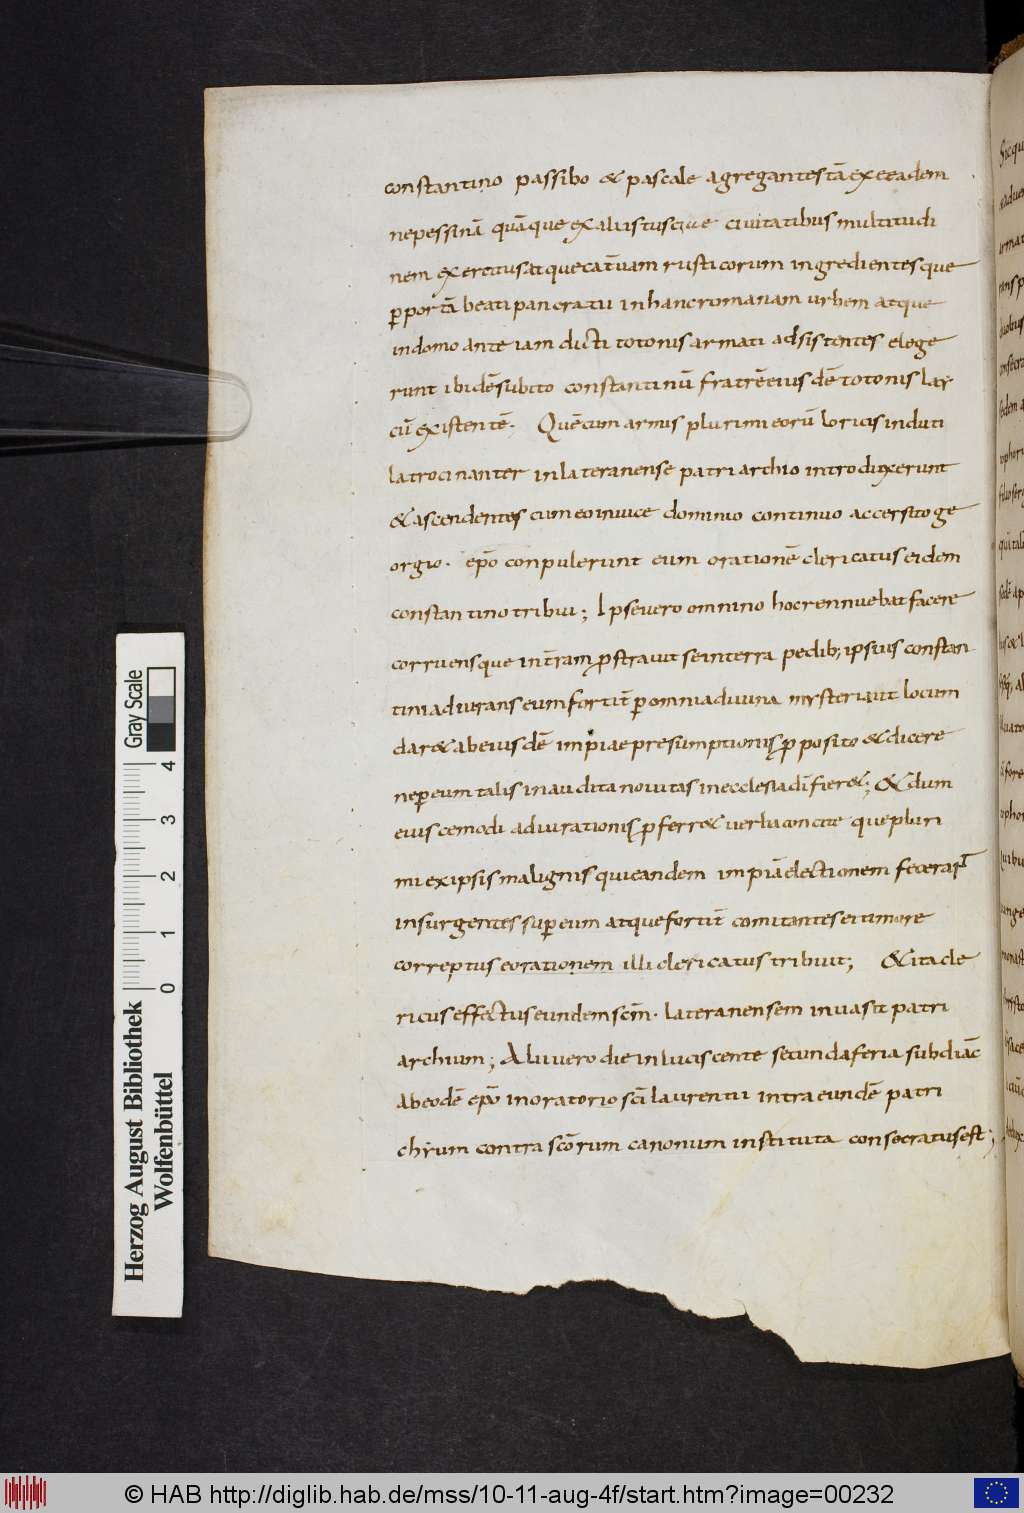 constantino passibo & pascale agregantes tā ex eeadem
nepessinā quāque ex aliis tusciue ciuitatibus multitudi
nem exercitus atque cat̄uam rusticorum ingredientesque
ꝑportā beati pancratii inhancromanam urbem atque
indomo ante iam dicti totonis armati adsistentes elege
runt ibidē subito constantinū fratrē eius dē totonis lay
cū existentē. Quē cum armis plurimi eorū loricis induti
latrocinanter inlateranense patriarchio introduxerunt
& ascendentes cum eo inuice dominio continuo accersito ge
orgio. ep̄o conpulerunt eum orationē clericatus eidem
constantino tribui; Ipse uero omnino hoc rennuebat facere
corruensque int̄ram ꝓstrauit se interra pedib; ipsius constan
tini adiurans eum fortit̄ ꝑ omnia diuina mysteria ut locum
dar& ab eius dē impiae presumptionis ꝓposito & dicere
ne ꝑ eum talis inaudita nouitas inecclesia dī fier&; & dum
eius cemodi adiurationis ꝓferr& uerba concite que pluri
mi ex ipsis malignis qui eandem impiā electionem fecerant
insurgentes super eum atque fortit̄ comitantes ei timore
correptus eorationem illi clericatus tribuit; & ita cle
ricus effectus eundem scm̄. lateranensem inuasit patri
archium; Alii uero die inluciscente secunda feria subdiac̄
ab eodē ep̄o in oratorio sc̄i laurentii intra eundē patri
chium contra sc̄orum canonum instituta consecratus est;
Gray Scale
4
3
2
1
0
Herzog August Bibliothek
Wolfenbüttel
© HAB http://diglib.hab.de/mss/10-11-aug-4f/start.htm?image=00232